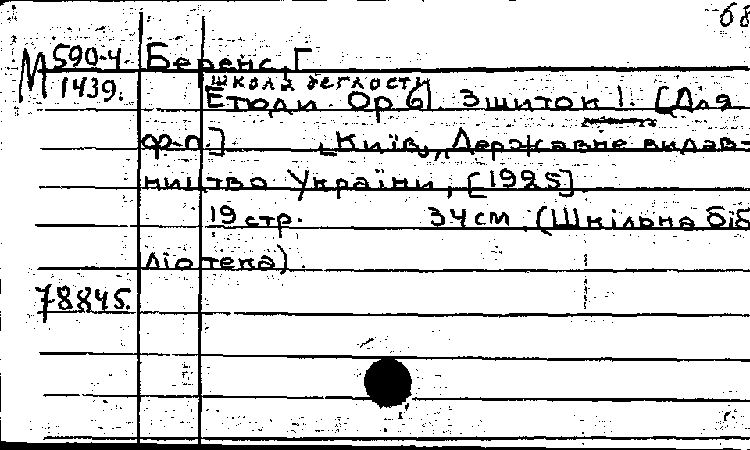 68
М 590-4. Беренс, Г
1439. Школа беглости
Етюди. Ор 61. Зшиток 1. [Для
ф-п.] [Київ], Державне видав-
ництво України, [1925].
19 стр. 34 см. (Шкільна біб
ліотека).
78845.